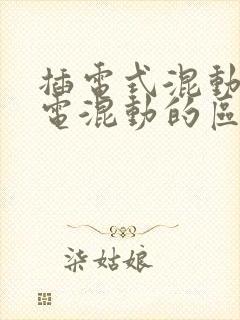 插電式混動
電混動的區
柒姑娘